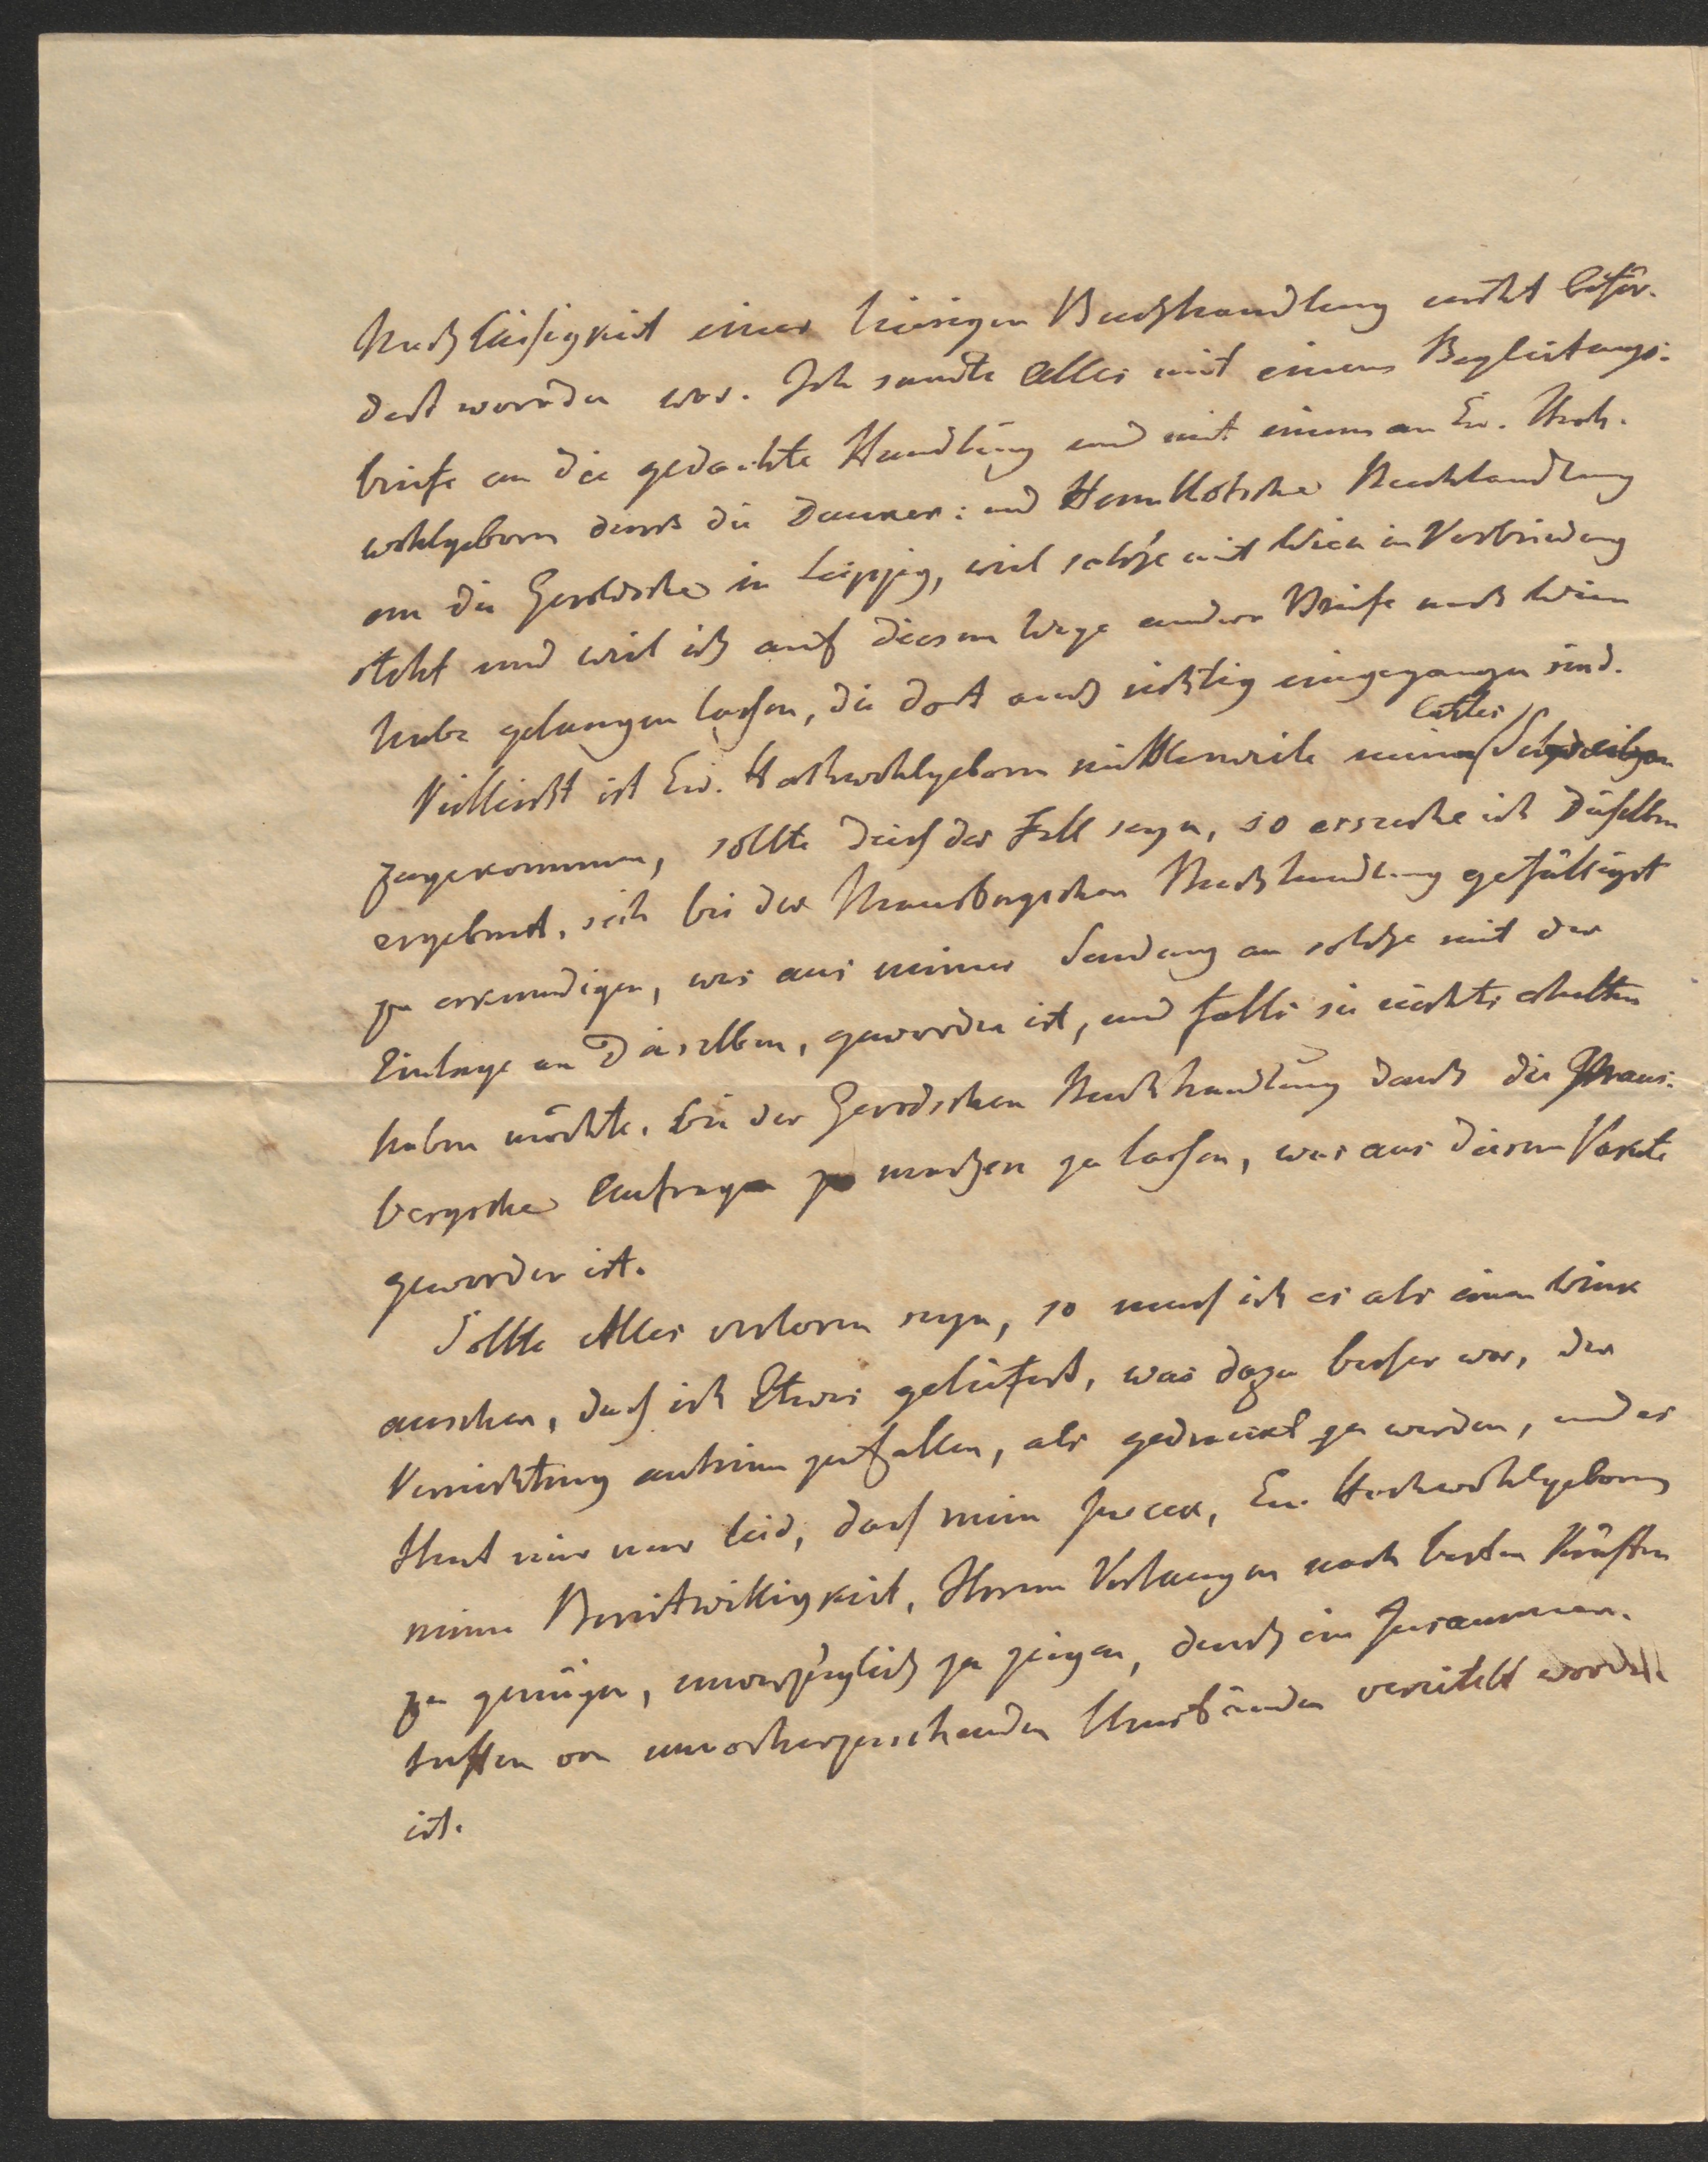 Nachläßigkeit einer hiesigen Buchhandlung nicht beför-
dert worden war. Ich sandte Alles mit einem Begleitungs-
briefe an die gedachte Handlung und mit einem an Ew. Hoch-
wohlgeborn durch die Duncker- und Humblotsche Buchhandlung
an die Geroldsche in Leipzig, weil solche mit Wien in Verbindung
steht und weil ich auf diesem Wege andere Briefe nach Wien
habe gelangen lassen, die dort auch richtig eingegangen sind.
Vielleicht ist Ew. Hochwohlgeborn mittlerweile mein Schreiben
zugekommen, sollte dieß der Fall seyn, so ersuche ich Dieselben
ergebenst, sich bei der Buchhandlung gefälligst
zu erkundigen, was aus meiner Sendung an solche mit der
Einlage an Dieselben, geworden ist, und falls sie nichts erhalten
haben möchte, bei der Geroldschen Buchhandlung durch die
Anfrage machen zu lassen, was aus diesem Pakete
geworden ist.
Sollte Alles verloren seyn, so muß ich es als einen Wink
ansehen, daß ich Etwas geliefert, was dazu besser war, der
Vernichtung anheim zu fallen, als gedruckt zu werden, und es
thut mir nur leid, daß mein Zweck, Ew. Hochwohlgeborn
meine Bereitwilligkeit, Ihrem Verlangen nach besten Kräften
zu genügen, unverzüglich zu zeigen, durch ein Zusammen-
treffen von unvorhergesehenden Umständen vereitelt worden
ist.